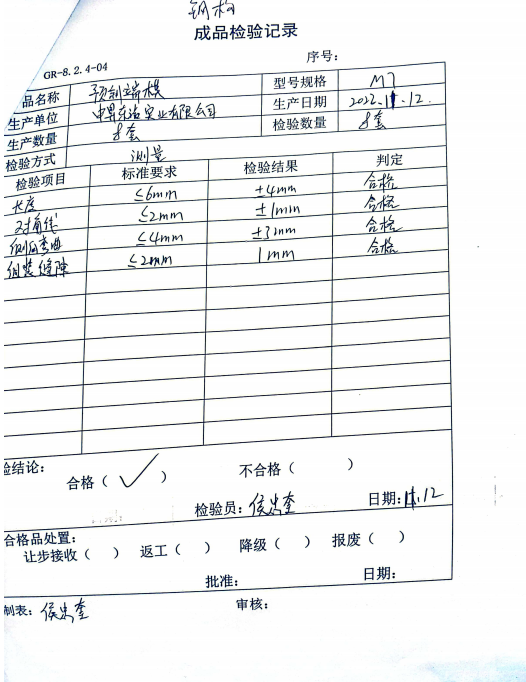 钢构
成品检验记录
GR-8.2.4-04 序号：
品名称 预制端模 型号规格 M7
生产单位 实业有限公司 生产日期 2022.11.12.
生产数量 8套 检验数量 8套
检验方式 测量
检验项目 标准要求 检验结果 判定
长度 ≤6mm ±4mm 合格
对角线 ≤2mm ±1mm 合格
侧面弯曲 ≤4mm ±3mm 合格
组装缝隙 ≤2mm 1mm 合格
验结论：
合格（✓） 不合格（ ）
检验员：侯忠奎 日期：11.12
合格品处置：
让步接收（ ） 返工（ ） 降级（ ） 报废（ ）
批准： 日期：
制表：侯忠奎 审核：